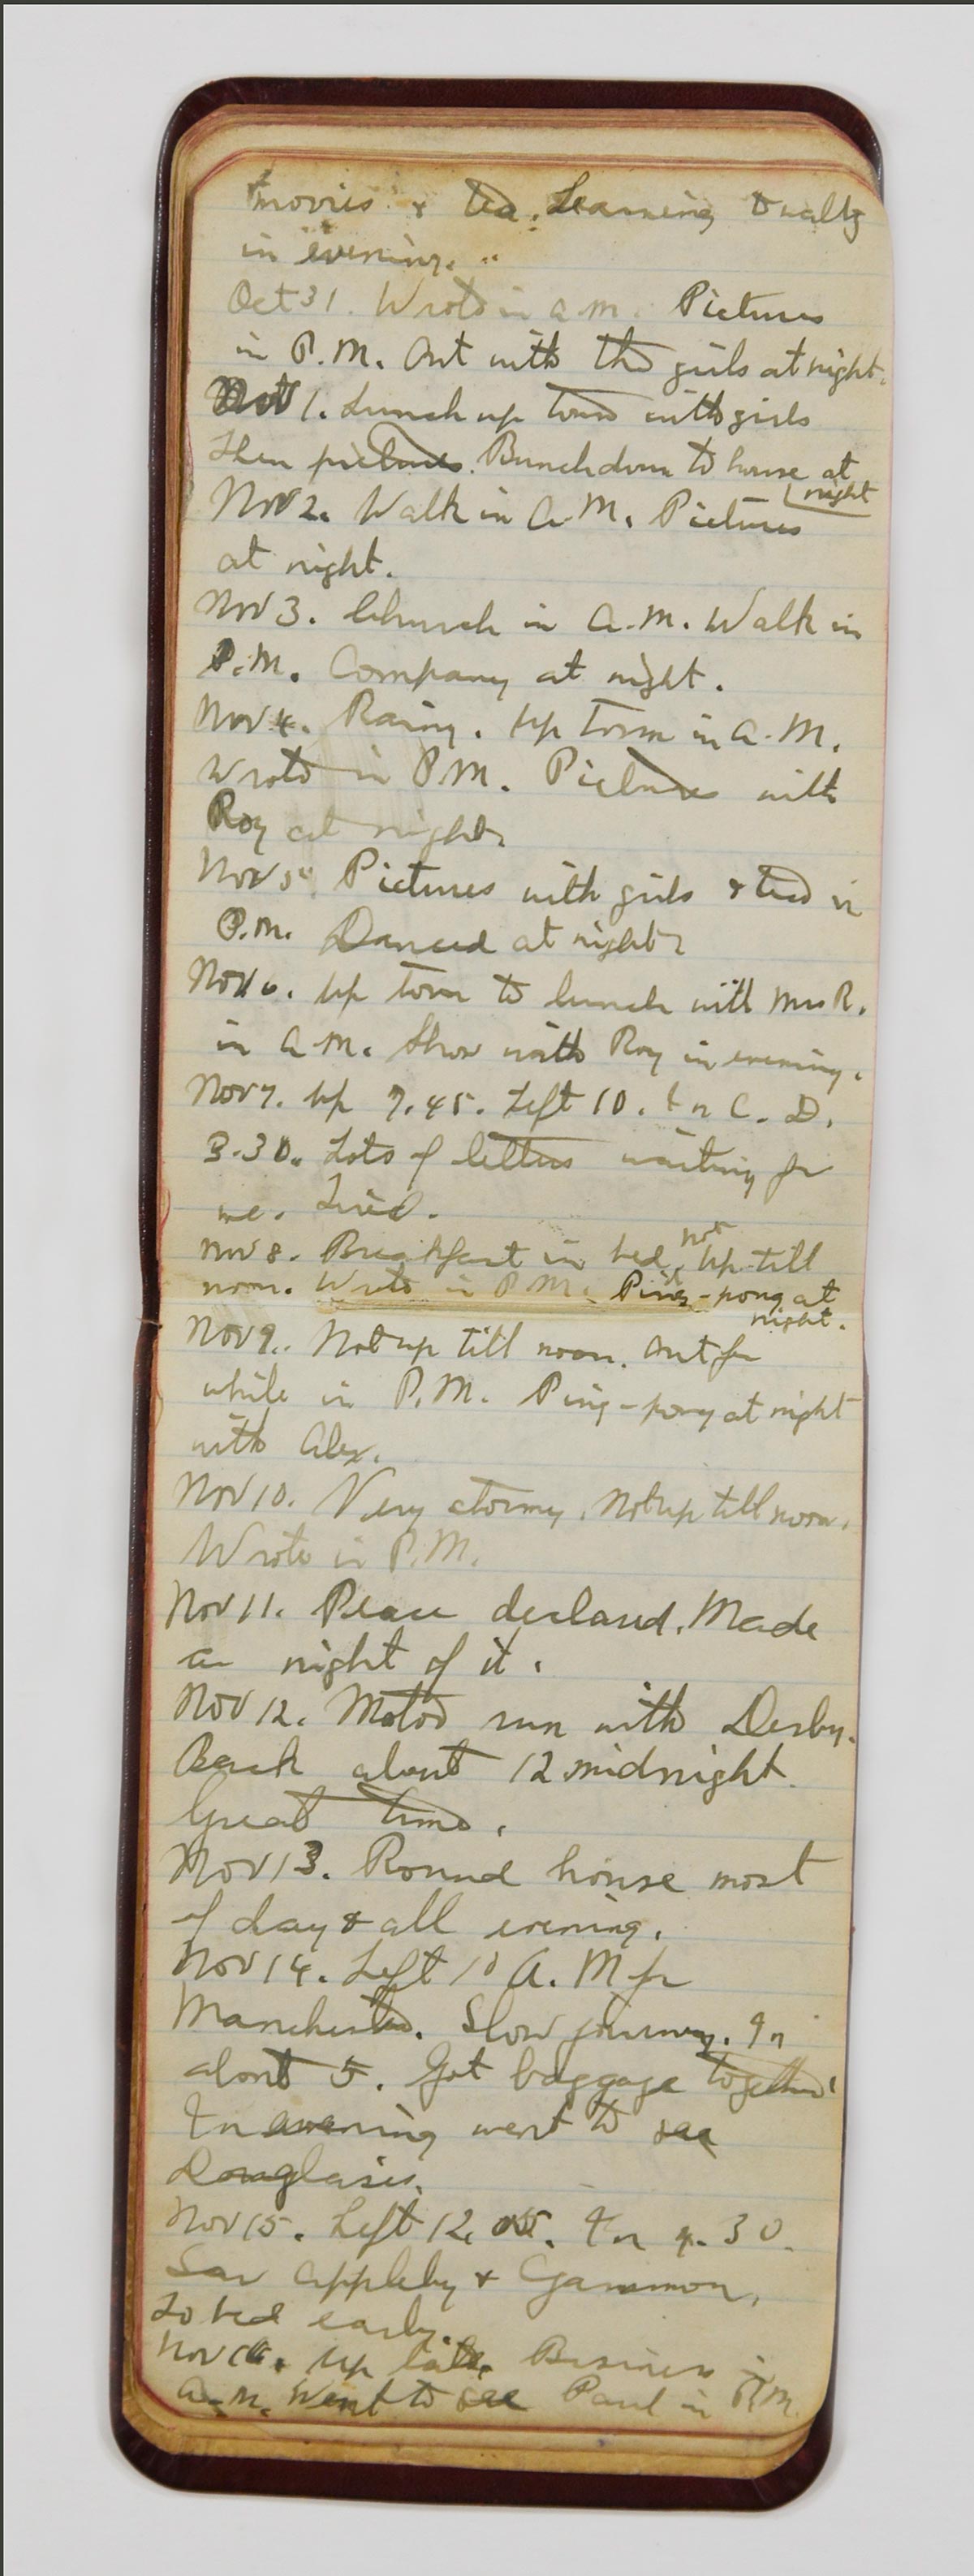 movies & tea. Learning to waltz
in evening.
Oct 31. Wrote in a.m. Pictures
in P.M. Out with the girls at night.
Nov 1. Lunch up town with girls
then pictures. Bunch down to house at
night
Nov 2. Walk in A.M. Pictures
at night.
Nov 3. Church in A.M. Walk in
P.M. Company at night.
Nov 4. Rainy. Up town in A.M.
Wrote in P.M. Pictures with
Roy at night.
Nov 5 Pictures with girls & tea in
P.M. Danced at night
Nov 6. Up town to lunch with Mrs R.
in A.M. Show with Roy in evening.
Nov 7. Up 7.45. Left 10. In C. D.
3.30. Lots of letters waiting for
me. Tired.
Nov 8. Breakfast in bed, not up till
noon. Wrote in P.M. Ping-pong at
night.
Nov 9. Not up till noon. Out for
while in P.M. Ping-pong at night
with Alex.
Nov 10. Very stormy. Not up till noon.
Wrote in P.M.
Nov 11. Peace declared. Made
a night of it.
Nov 12. Motor run with Derby.
Back about 12 midnight.
Great time.
Nov 13. Round house most
of day & all evening.
Nov 14. Left 10 A.M for
Manchester. Slow journey. In
about 5. Got baggage together.
In evening went to see
Douglasies.
Nov 15. Left 12.05. In 4.30.
Saw Appleby & Gammon.
To bed early.
Nov 16. Up late. Business in
A.M. Went to see Paul in P.M.